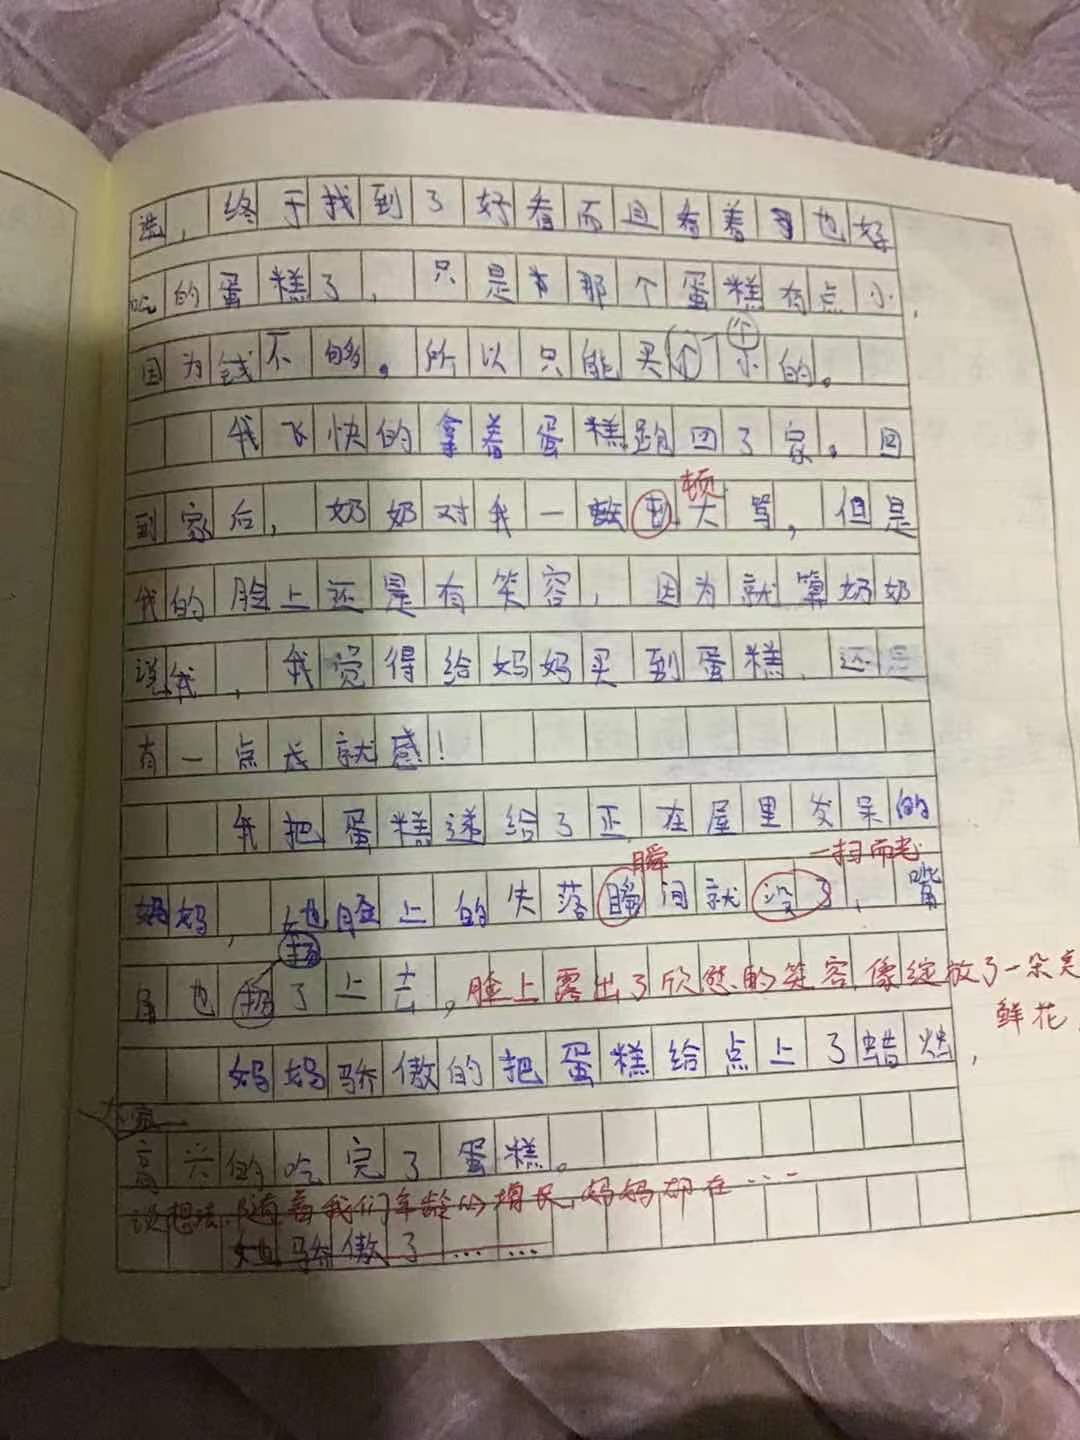 选，终于找到了好看而且看着也好
吃的蛋糕了，只是那个蛋糕有点小，
个
因为钱不够。所以只能买个小的。
我飞快的拿着蛋糕跑回了家。回
顿
到家后，奶奶对我一大骂，但是
我的脸上还是有笑容，因为就算奶奶
说我，我觉得给妈妈买到蛋糕，还是
有一点成就感！
我把蛋糕递给了正在屋里发呆的
瞬 一扫而光
妈妈，她脸上的失落间就没了，嘴
扬
角也扬了上去，脸上露出了欣慰的笑容，像绽放了一朵美
鲜花，
妈妈骄傲的把蛋糕给点上了蜡烛，
大家
高兴的吃完了蛋糕。
谈想法，随着我们年龄的增长，妈妈却在……
她骄傲了……